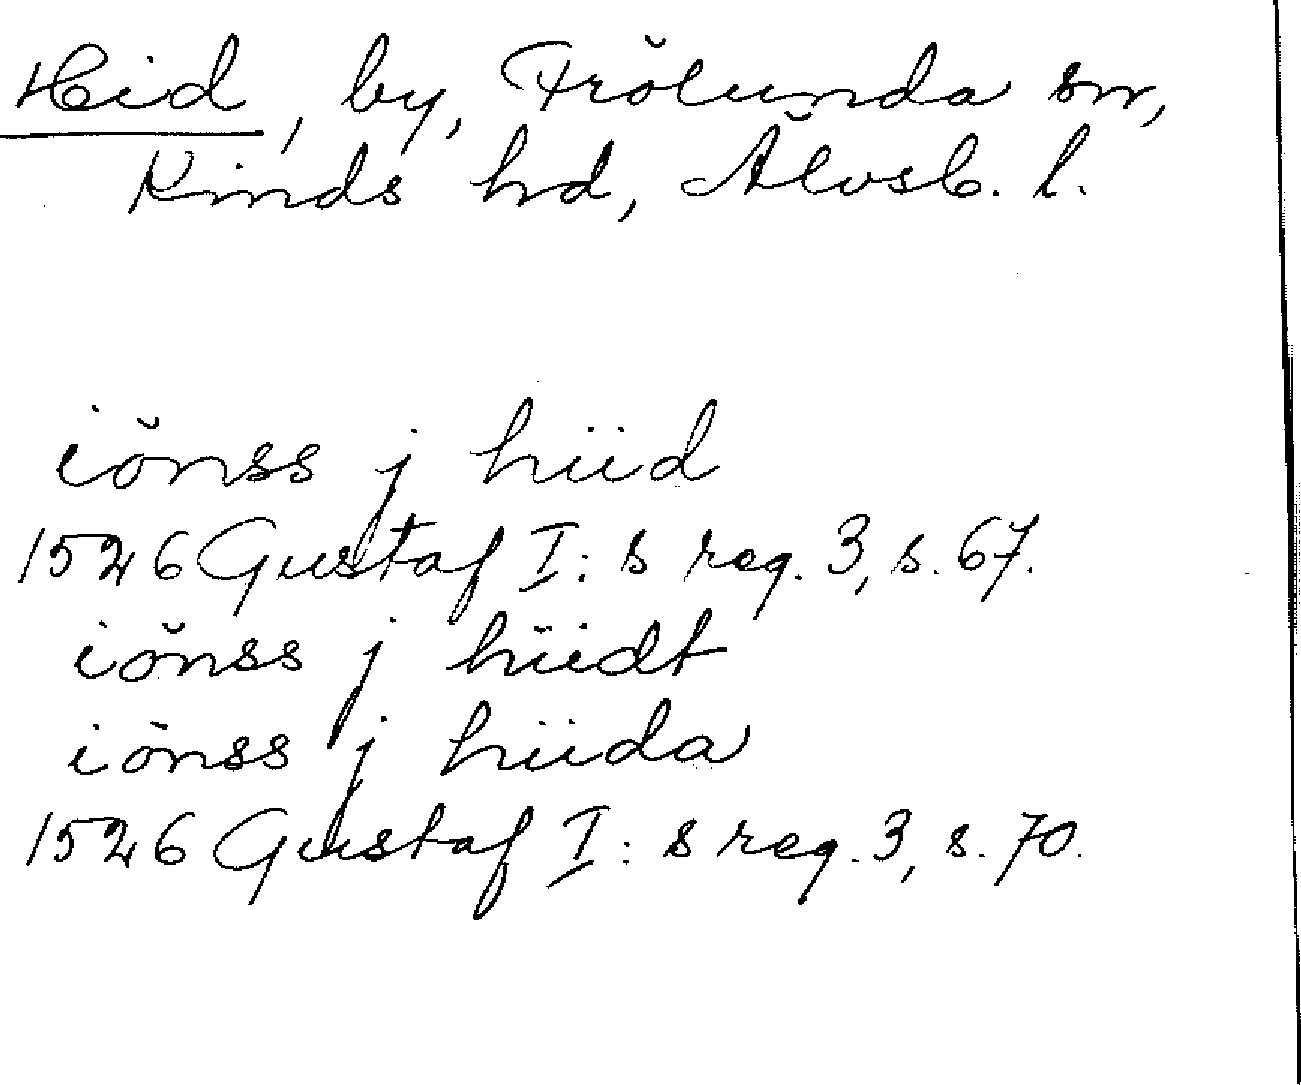 Hid, by, Frölunda sn,
Kinds hd, Älvsb. l.
iönss j hiid
1526 Gustaf I: s reg. 3, s. 67.
iönss j hiidt
iönss j hiida
1526 Gustaf I: s reg. 3, s. 70.